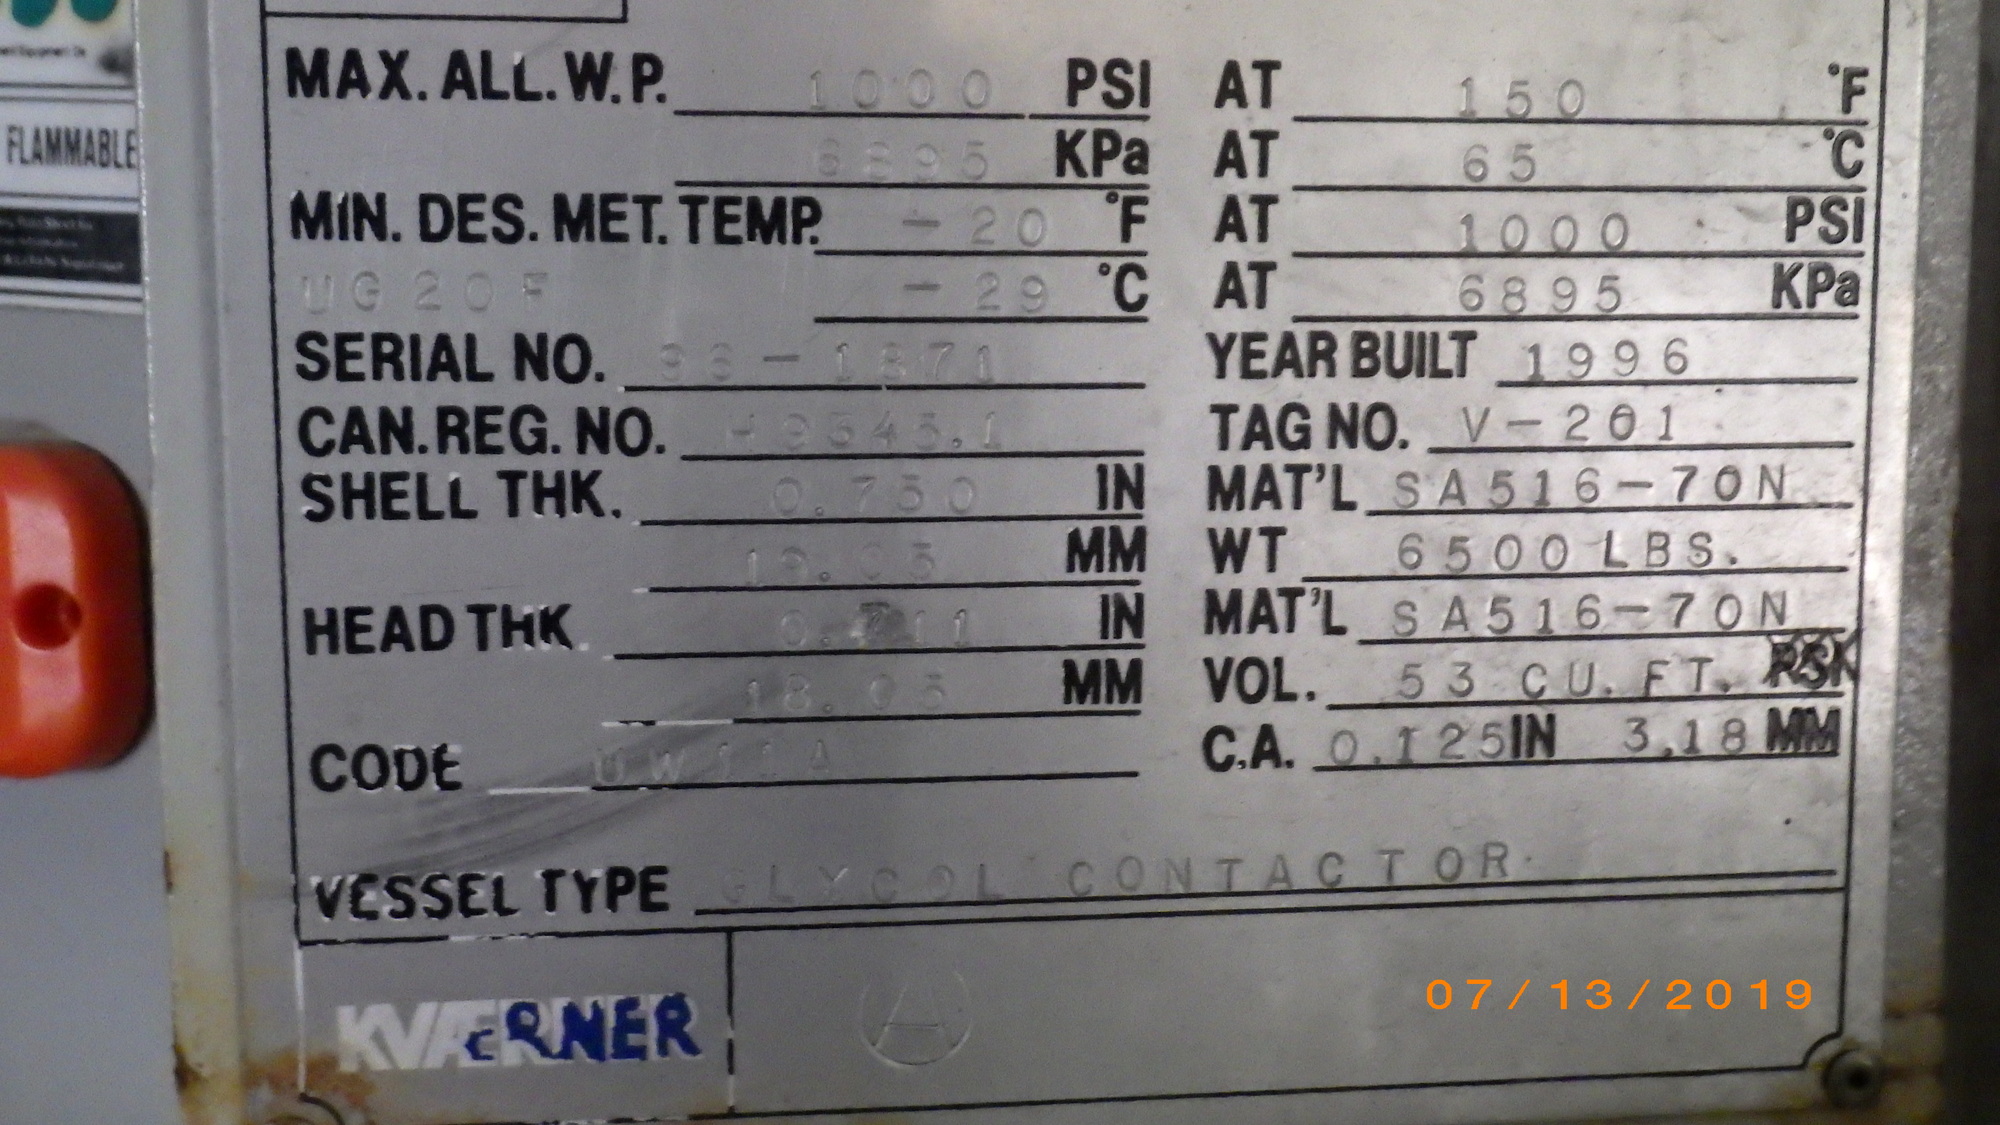 FLAMMABLE
MAX. ALL. W.P. 1000 PSI AT 150 °F
6895 KPa AT 65 °C
MIN. DES. MET. TEMP. -20 °F AT 1000 PSI
UG20F -29 °C AT 6895 KPa
SERIAL NO. 96-1871 YEAR BUILT 1996
CAN. REG. NO. TAG NO. V-201
SHELL THK. 0.750 IN MAT'L SA516-70N
19.05 MM WT 6500 LBS.
HEAD THK. 0.711 IN MAT'L SA516-70N
18.05 MM VOL. 53 CU. FT.
CODE UW11A C.A. 0.125 IN 3.18 MM
VESSEL TYPE GLYCOL CONTACTOR
KVÆRNER A
07/13/2019